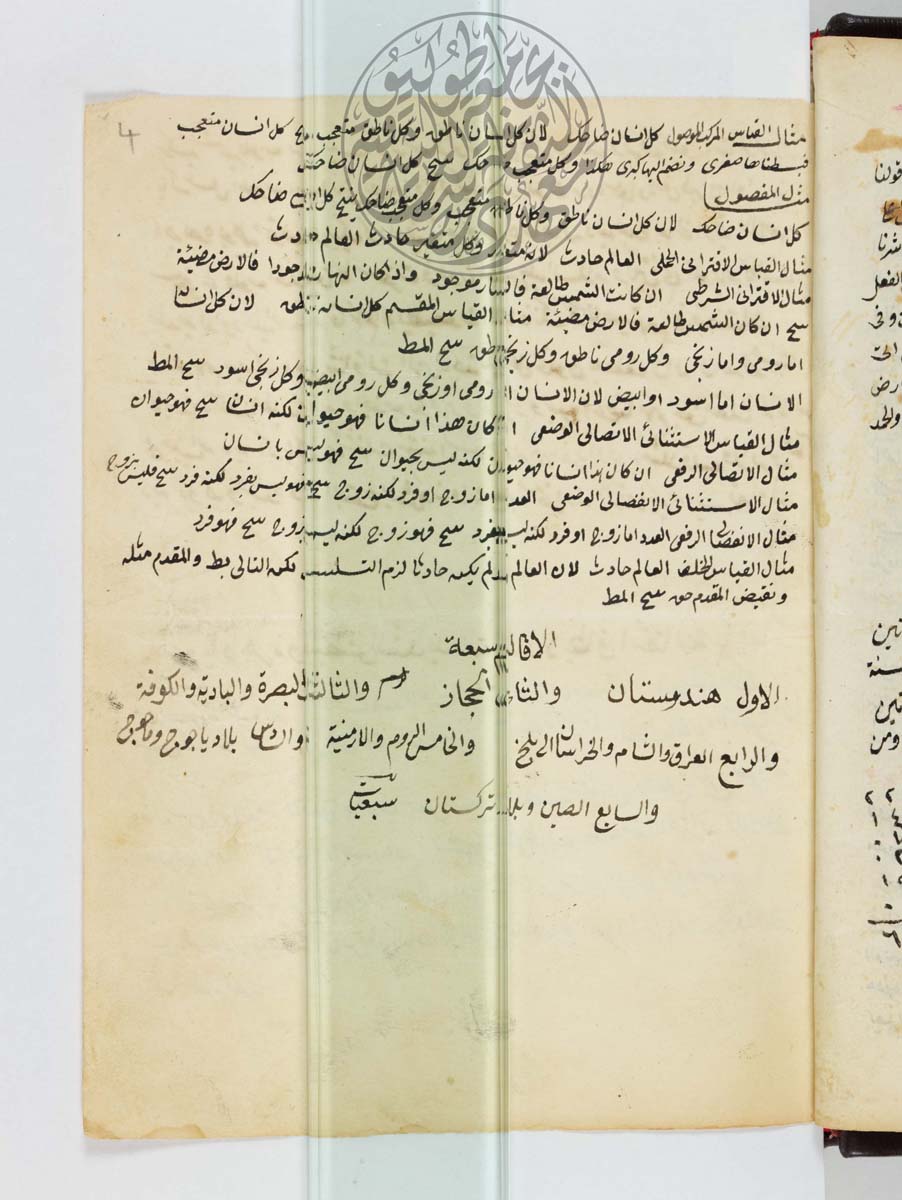 4
مثال القياس المركب الموصول كل انسان ضاحك لان كل انسان ناطق وكل ناطق متعجب ينتج كل انسان متعجب
صغرى ونضم اليها كبرى هكذا وكل متعجب ضاحك سج كل انسان ضاحك
مثال المفصول
كل انسان ضاحك لان كل انسان ناطق وكل ناطق متعجب وكل متعجب ضاحك ينتج كل انسان ضاحك
مثال القياس الاقترانى الحملى العالم حادث لانه متغير وكل متغير حادث العالم حادث
مثال الاقترانى الشرطى ان كانت الشمس طالعة فالنهار موجود واذا كان النهار موجودا فالارض مضيئة
سج ان كان الشمس طالعة فالارض مضيئة مثال القياس المقسم كل انسان ناطق لان كل انسان
اما رومى واما زنجى وكل رومى ناطق وكل زنجى ناطق سج المط
الانسان اما اسود او ابيض لان الانسان اما رومى او زنجى وكل رومى ابيض وكل زنجى اسود سج المط
مثال القياس الاستثنائى الاتصالى الوضعى ان كان هذا انسانا فهو حيوان لكنه انسان سج فهو حيوان
مثال الاتصالى الرفعى ان كان هذا انسانا فهو حيوان لكنه ليس بحيوان سج فهو ليس بانسان
مثال الاستثنائى الانفصالى الوضعى العدد اما زوج او فرد لكنه زوج سج فهو ليس بفرد لكنه فرد سج فليس بزوج
مثال الانفصالى الرفعى العدد اما زوج او فرد لكنه ليس بفرد سج فهو زوج لكنه ليس بزوج سج فهو فرد
مثال القياس الخلف العالم حادث لان العالم لو لم يكن حادثا لزم التسلسل لكن التالى بط والمقدم مثله
ونقيض المقدم حق سج المط
الاقاليم سبعة
الاول هندوستان والثانى الحجاز والثالث البصرة والبادية والكوفة
والرابع العراق والشام والخراسان الى بلخ والخامس الروم والارمنية والسادس بلاد ياجوج وماجوج
والسابع الصين وبلاد تركستان سبعيات